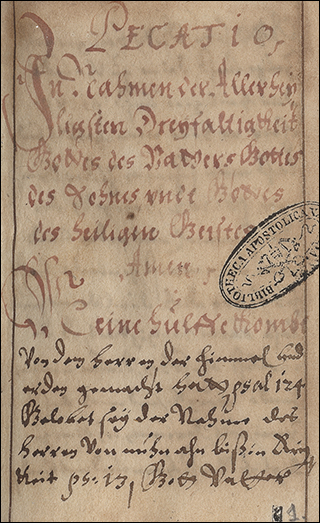 PECATIO,
In Nahmen der Allerhey
ligsten Dreyfaltigkeit
Gottes des Vatters Gottes
des Sohnes unde Gottes
des heiligen Geistes
Amen
Meine hülffe Kombt
Von dem herren, der himmel und
erden gemacht hatt psal 124
Gelobet sey der Nahme des
herren Von nuhn ahn biß in
Keit ps: 13, Gott Vatter
BIBLIOTHECA APOSTOLICA